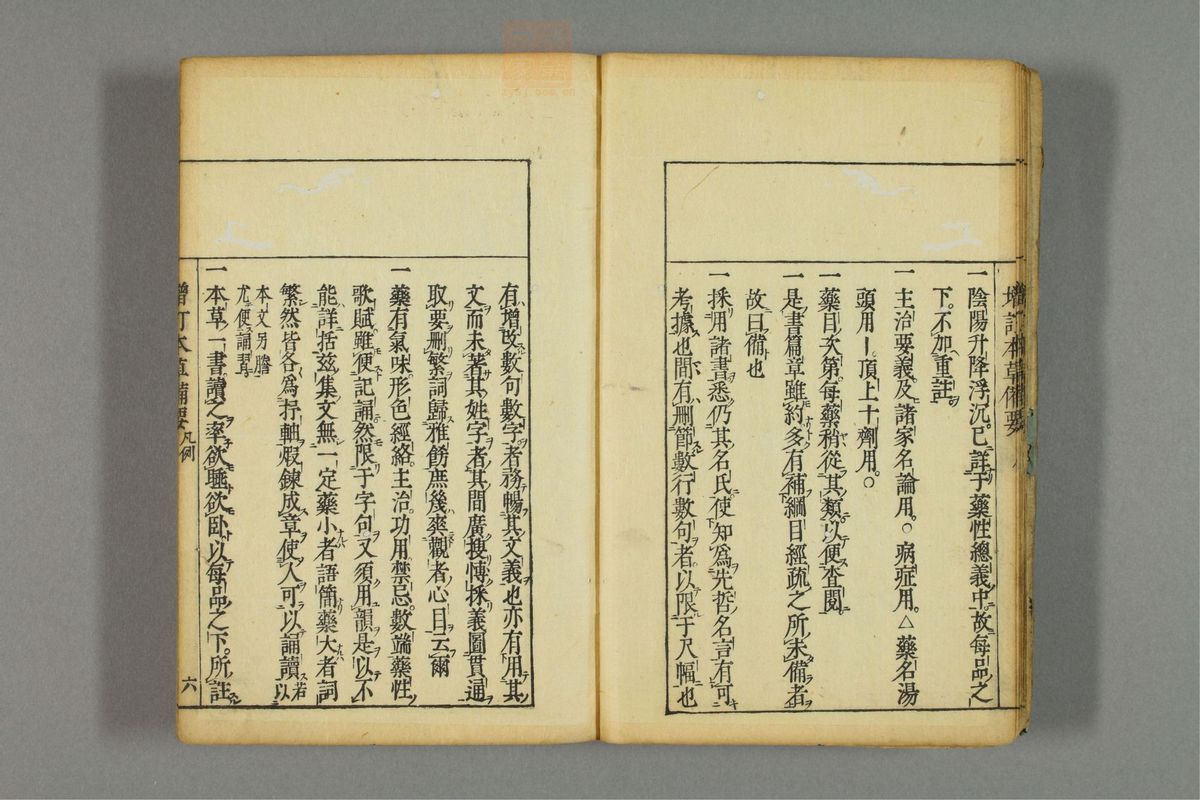 增訂本草備要
一陰陽升降浮沉已詳于藥性總義中故每品之
下。不加重註
一主治要義及諸家名論用。○病症用。△藥名湯
頭用｜。頂上十劑用。○
一藥目次第每藥稍從其類以便查閱
一是書篇章雖約多有補綱目經疏之所未備者
故曰備也
一採用諸書悉仍其名氏使知爲先哲名言有可
考據也間有刪節數行數句者以限于尺幅也
有增改數句數字者務暢其文義也亦有用其
文而未著其姓字者其間廣搜博採義圖貫通
取要刪繁詞歸雅飭庶幾爽觀者心目云爾
一藥有氣味形色經絡主治功用禁忌數端藥性
歌賦雖便記誦然限于字句又須用韻是以不
能詳括茲集文無一定藥小者語簡藥大者詞
繁然皆各爲杼軸煅鍊成章使人可以誦讀若以
本文另謄
尤便誦習
一本草一書讀之率欲睡欲卧以每品之下。所註
增訂本草備要 凡例 六